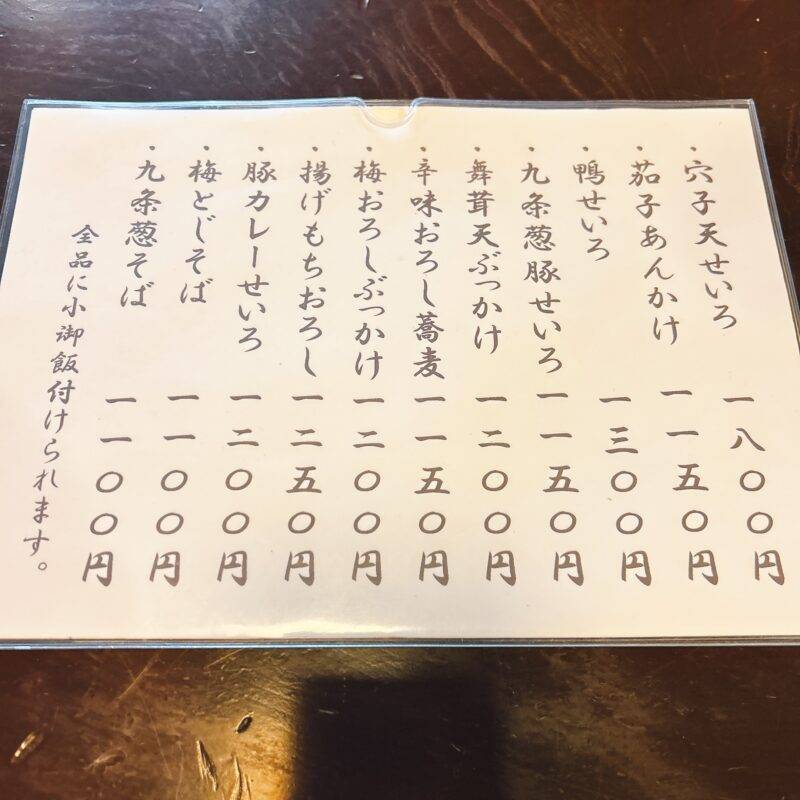 ・穴子天せいろ 一八〇〇円
・茄子あんかけ 一一五〇円
・鴨せいろ 一三〇〇円
・九条葱豚せいろ 一一五〇円
・舞茸天ぶっかけ 一二〇〇円
・辛味おろし蕎麦 一一五〇円
・梅おろしぶっかけ 一二〇〇円
・揚げもちおろし 一二五〇円
・豚カレーせいろ 一二〇〇円
・梅とじそば 一一〇〇円
・九条葱そば 一一〇〇円
全品に小御飯付けられます。